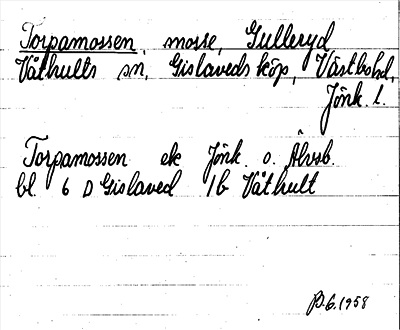 Torpamossen, mosse, Gulleryd
Våthults sn, Gislaveds köp, Västbohd,
Jönk. l.
Torpamossen ek Jönk. o. Älvsb.
bl. 6 D Gislaved 1b Våthult
6.1958